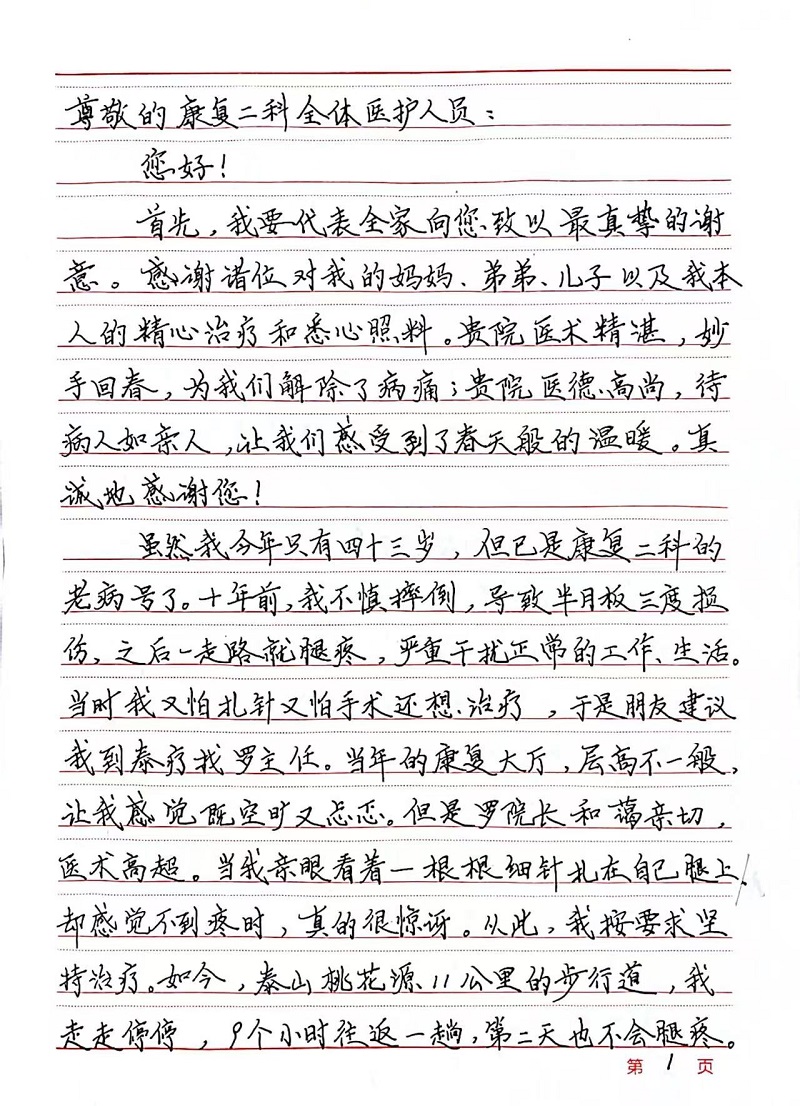 尊敬的康复二科全体医护人员：
您好！
首先，我要代表全家向您致以最真挚的谢
意。感谢诸位对我的妈妈、弟弟、儿子以及我本
人的精心治疗和悉心照料。贵院医术精湛，妙
手回春，为我们解除了病痛；贵院医德高尚，待
病人如亲人，让我们感受到了春天般的温暖。真
诚地感谢您！
虽然我今年只有四十三岁，但已是康复二科的
老病号了。十年前，我不慎摔倒，导致半月板三度损
伤，之后一走路就腿疼，严重干扰正常的工作、生活。
当时我又怕扎针又怕手术还想治疗，于是朋友建议
我到泰疗找罗主任。当年的康复大厅，层高不一般，
让我感觉既空旷又忐忑。但是罗院长和蔼亲切，
医术高超。当我亲眼看着一根根细针扎在自己腿上，
却感觉不到疼时，真的很惊讶。从此，我按要求坚
持治疗。如今，泰山桃花源11公里的步行道，我
走走停停，9个小时往返一趟，第二天也不会腿疼。
第 1 页